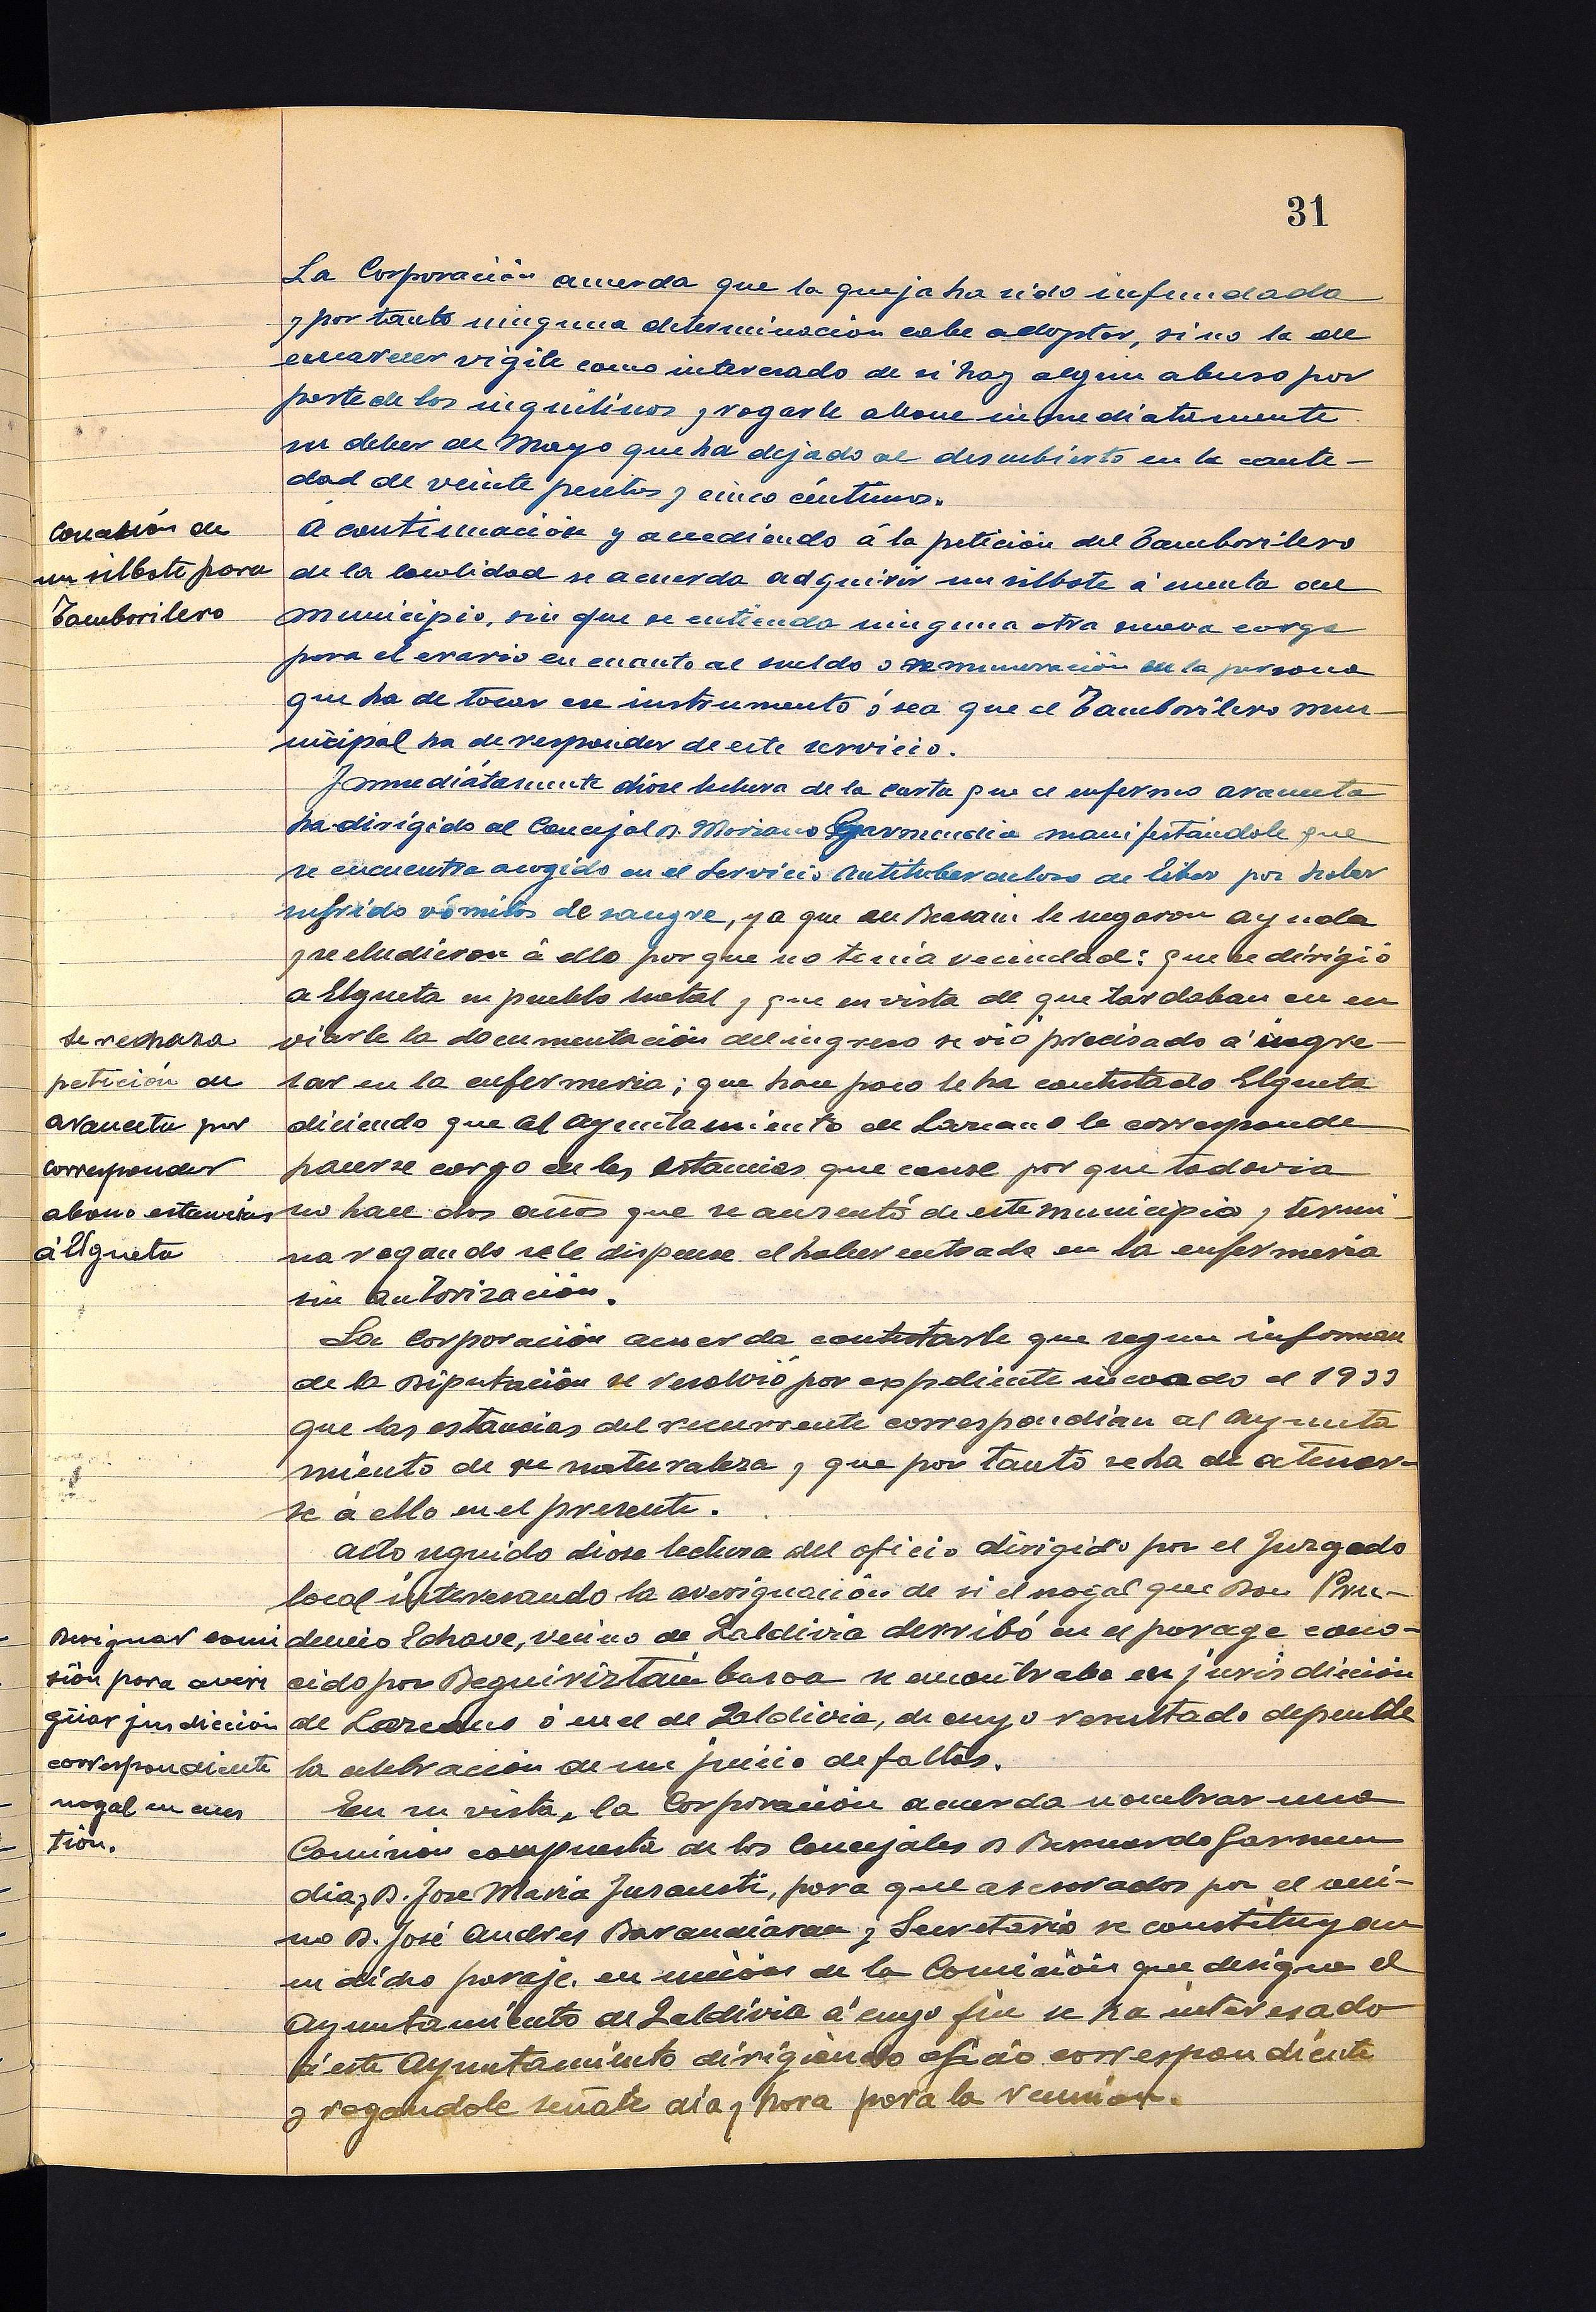 31
La Corporación acuerda que la queja ha sido infundada
y por tanto ninguna determinación cabe adoptar, si no la de
encarecer vigile como interesado de si hay algun abuso por
parte de los inquilinos y rogarle abone inmediatamente
su deber de Mayo que ha dejado al descubierto en la canti-
dad de veinte pesetas y cinco céntimos.
Concesión de
un silbote para
Tamborilero
A continuación y accediendo á la petición del Tamborilero
de la localidad se acuerda adquirir un silbote á cuenta del
Municipio, sin que se entienda ninguna otra nueva carga
para el erario en cuanto al sueldo o remuneración de la persona
que ha de tocar ese instrumento ó sea que el Tamborilero mu-
nicipal ha de responder de este servicio.
Inmediátamente diose lectura de la carta que el enfermo Aranceta
ha dirigido al Concejal D. Mariano Garmendia manifestándole que
se encuentra acogido en el Servicio Antituberculoso de Eibar por haber
sufrido vómitos de sangre, ya que en Beasain le negaron ayuda
y se eludieron á ello porque no tenia vecindad: que se dirigió
a Elgueta su pueblo natal y que en vista de que tardaban en en
viarle la documentación del ingreso se vió precisado á ingre-
sar en la enfermeria; que hace poco le ha contestado Elgueta
diciendo que al Ayuntamiento de Lazcano le corresponde
hacerse cargo de las estancias que cause por que todavia
no hace dos años que se ausentó de este municipio y termi-
na rogando se le dispense el haber entrado en la enfermeria
sin autorización.
Se rechaza
petición de
Aranceta por
corresponder
abono estancias
á Elgueta
La Corporación acuerda contestarle que segun informan
de la Diputación se resolvió por expediente incoado el 1933
que las estancias del recurrente correspondian al Ayunta
miento de su naturaleza y que por tanto se ha de atener-
se á ello en el presente.
Acto seguido diose lectura del oficio dirigido por el Juzgado
local interesando la averiguación de si el nogal que Don Pru-
dencio Echave, vecino de Zaldivia derribó en el parage cono-
cido por Beguiriztain basoa se encontraba en jurisdicción
de Lazcano ó en el de Zaldivia, de cuyo resultado depende
la celebracion de un juicio de faltas.
Designar comi
sión para averi
güar jusdicción
correspondiente
nogal en cues
tión.
En su vista, la Corporación acuerda nombrar una
Comisión compuesta de los Concejales D Bernardo Garmen
dia y D. Jose Maria Jusausti, para que asesorados por el veci-
no D. José Andres Barandiaran y Secretario se constituyan
en dicho paraje, en unión de la Comisión que designe el
Ayuntamiento de Zaldivia á cuyo fin se ha interesado
á este Ayuntamiento dirigiendo oficio correspondiente
y rogandole señale dia y hora para la reunion.